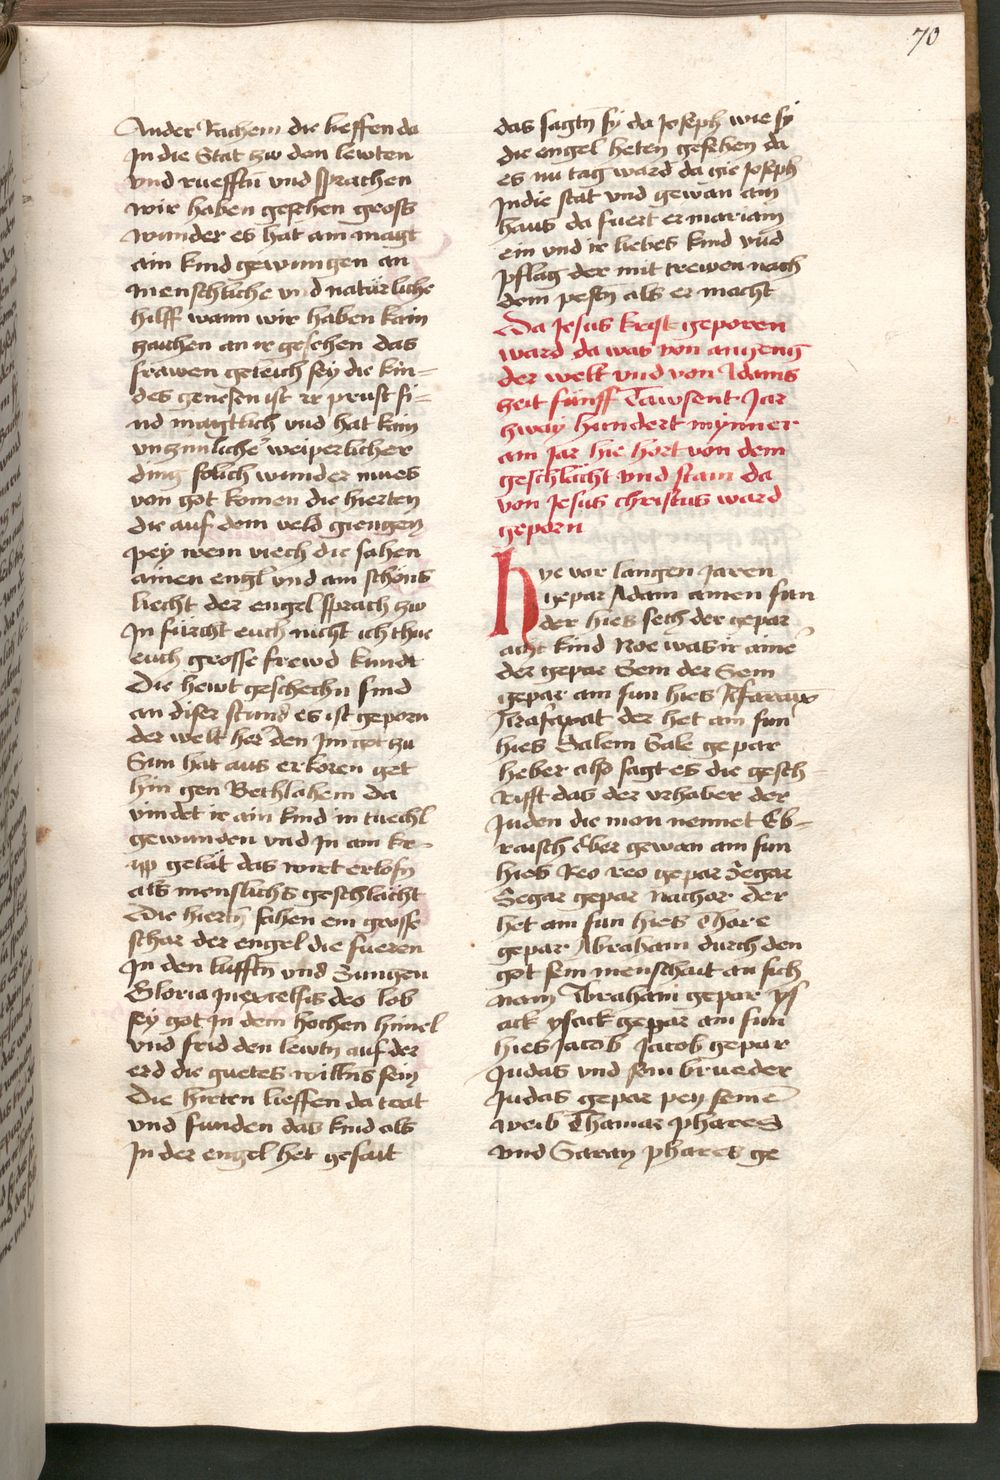 70
Ander Rachem die lieffen da
In die Stat zw den lewten
vnd ruefften vnd sprachen
wir haben gesehen gross
wunder es hat ain magt
ain kind gewungen an
menschliche vnd natürliche
hilff wann wir haben kain
zaichen an ir gesehen das
frawen geleich sey die kin=
des genesen ist ir prust si=
nd magtlich vnd hat kain
vnzimliche weiperlicher
ding solich wunder mues
von got komen die hierten
die auf dem veld giengen
pey irem viech die sahen
ainen engl vnd ain schöns
liecht der engel sprach zw
In fürcht euch nicht ich thue
euch grosse frewd kundt
Die hewt geschechn sind
an diser stund es ist geporn
der welt her den Im got zu
Sun hat aus erkoren get
hin gen Bethlahem da
vindet ir ain kind in tuechl
gewunden vnd In ain kr=
ipp gelät das wirt erlosn
als menslichs geschlächt
Die hiertn sahen ein grosse
schar der engel die fueren
In den lufftn vnd Sungen
Gloria in excelsis deo lob
sey got In dem hochen himel
vnd frid den lewtn auf der
erd die guetes willns sein
Die hirten lieffen da trat
vnd funden das kind als
In der engel het gesait
das sagtn sy da Joseph wie sy
die engel heten gesehen da
es nu tag ward da gie Joseph
In die stat vnd gewan ain
haus da fuert er mariam
ein vnd ir liebes kind vnd
pflag der mit trewen nach
dem pestn als er macht
Da Jesus krist geporen
ward da was von angeng
der welt vnd von Adams
zeit fünff Tawsent Jar
zway hundert mynner
ain Jar hie hort von dem
geschlächt vnd stam da
von Jesus christus ward
geporn
hye vor langen Jaren
gepar Adam ainen sun
der hies seth der gepar
acht kind Noe was ir aine
der gepar Sem der Sem
gepar ain sun hies Arfaxat
Arafaxat der het ain sun
hies Salem Sale gepar
heber also sagt es die gesch=
rifft das der vrhaber der
Juden die mon nennet Eb=
raisch Eber gewan ain sun
hies Reo reo gepar Segar
Segar gepar Nachor der
het ain sun hies Thare
gepar Abraham durch den
got sein menschait an sich
nam Abraham gepar ys
ack ysack gepar ain sun
hies Jacob Jacob gepar
Judas vnd sein brueder
Judas gepar pey seine
weib Thamar phares
vnd Saram phares ge